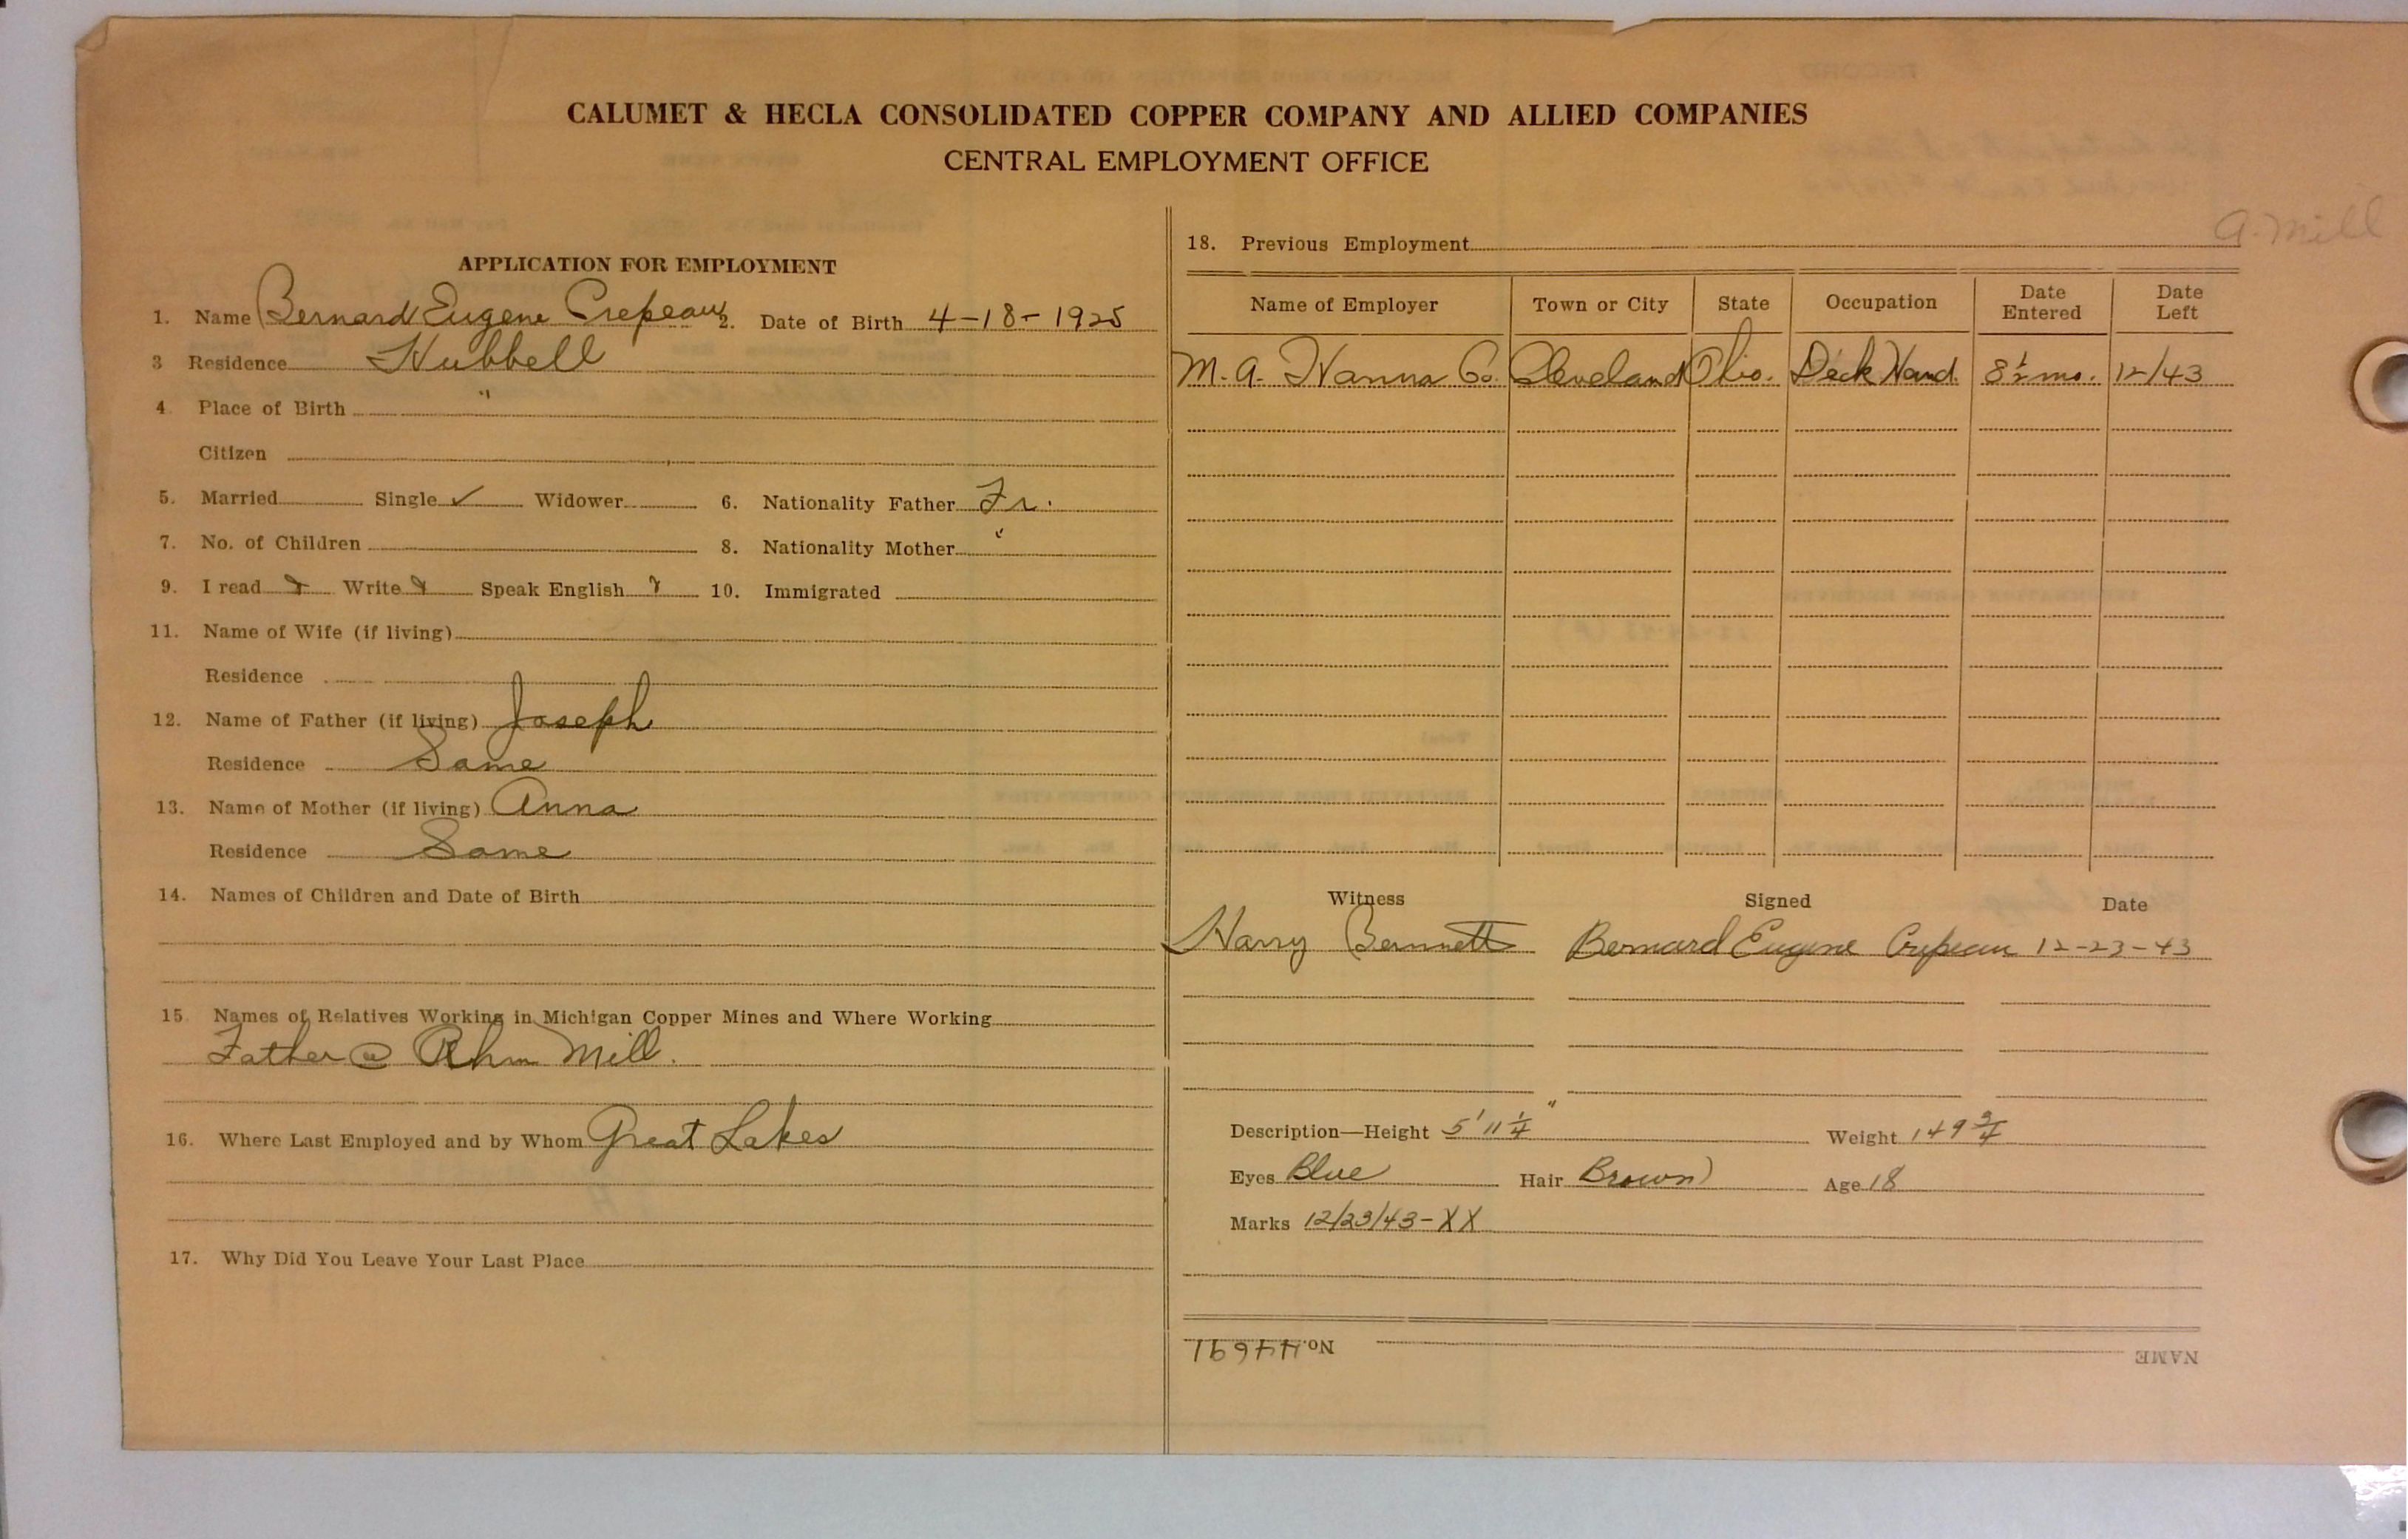 CALUMET & HECLA CONSOLIDATED COPPER COMPANY AND ALLIED COMPANIES
CENTRAL EMPLOYMENT OFFICE
A. Mill
APPLICATION FOR EMPLOYMENT
1. Name Bernard Eugene Crepeau 2. Date of Birth 4-18-1925
3 Residence Hubbell
4 Place of Birth "
Citizen
5. Married Single ✓ Widower 6. Nationality Father Fr.
7. No. of Children 8. Nationality Mother "
9. I read Write Speak English 10. Immigrated
11. Name of Wife (if living)
Residence
12. Name of Father (if living) Joseph
Residence Same
13. Name of Mother (if living) Anna
Residence Same
14. Names of Children and Date of Birth
15 Names of Relatives Working in Michigan Copper Mines and Where Working
Father @ Ahm Mill.
16. Where Last Employed and by Whom Great Lakes
17. Why Did You Leave Your Last Place
18. Previous Employment
Name of Employer Town or City State Occupation Date Entered Date Left
M. A. Hanna Co. Cleveland Ohio. Deck Hand 8½ mo. 12/43
Witness Signed Date
Harry Bennett Bernard Eugene Crepeau 12-23-43
Description—Height 5' 11¼" Weight 149¾
Eyes Blue Hair Brown Age 18
Marks 12/23/43-XX
NAME No. 44691